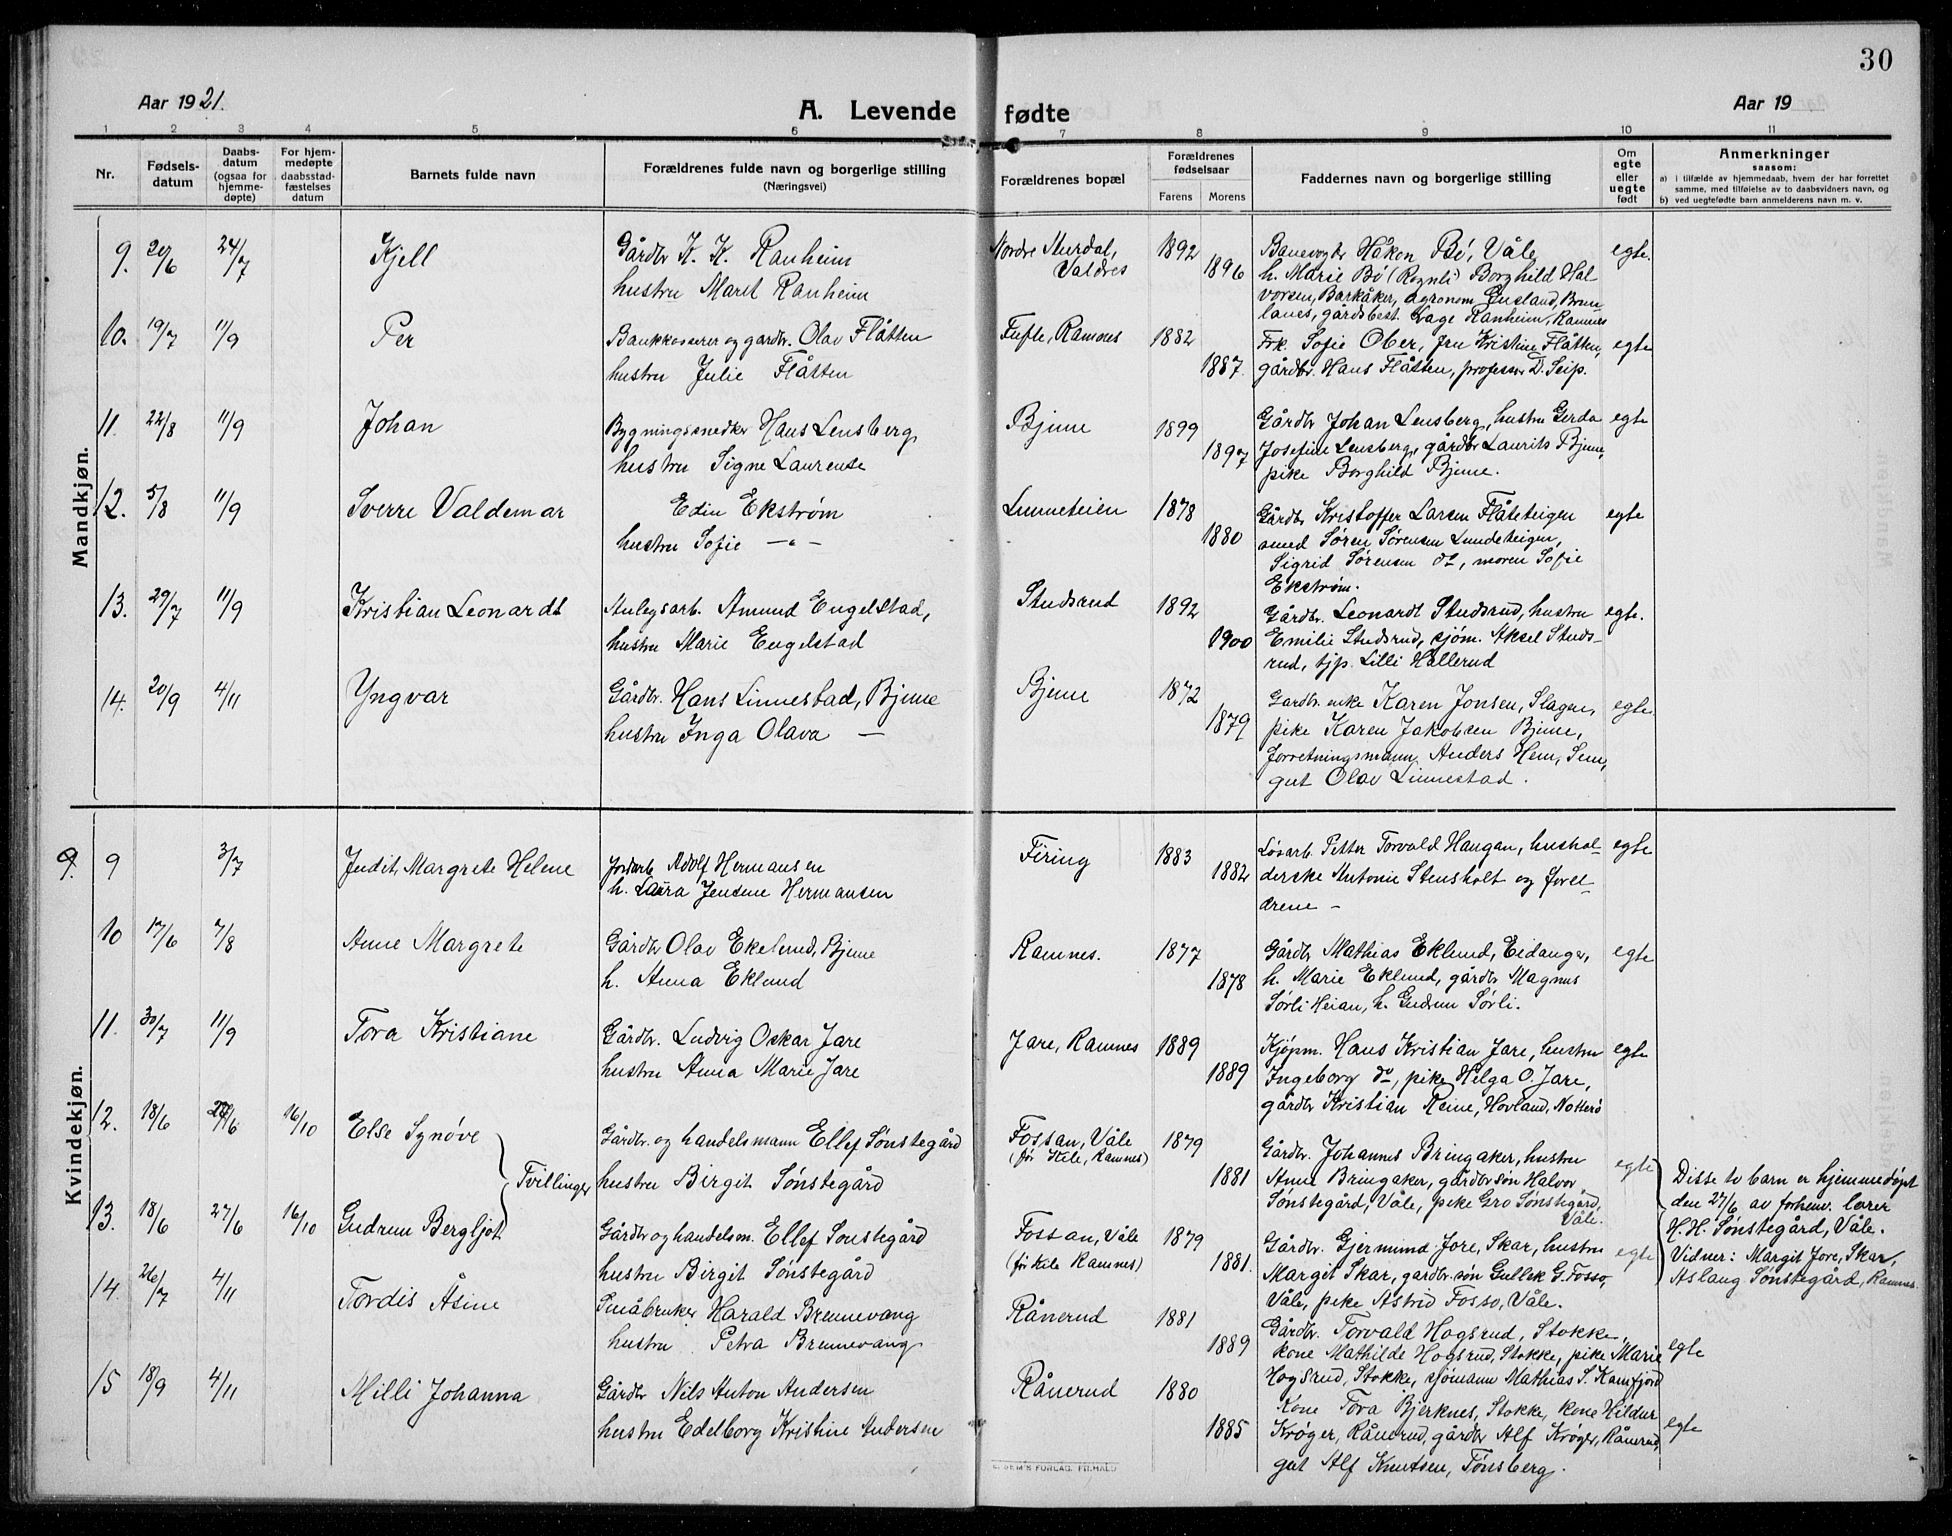 30
Aar 1921.
A. Levende fødte
Aar 19
1 2 3 4 5 6 7 8 9 10 11
Nr.
Fødsels-
datum
Daabs-
datum
(ogsaa for
hjemme-
døpte)
For hjem-
medøpte
daabsstad-
fæstelses
datum
Barnets fulde navn
Forældrenes fulde navn og borgerlige stilling
(Næringsvei)
Forældrenes bopæl
Forældrenes
fødselsaar
Farens Morens
Faddernes navn og borgerlige stilling
Om
egte
eller
uegte
født
Anmerkninger
saasom:
a) i tilfælde av hjemmedaab, hvem der har forrettet
samme, med tilføielse av to daabsvidners navn, og
b) ved uegtefødte barn anmelderens navn m. v.
Mandkjøn.
9. 20/6 24/7 Kjell
Gårdbr K. K. Ranheim
hustru Marit Ranheim
Nordre Aurdal,
Valdres
1892
1896
Banevogter Håkon Bö, Våle
h. Marie Bö (Rognli) Borghild Hal-
vorsen, Barkåker, agronom Gusland, Brun-
lanes, gårdsbest. Lage Ranheim, Ramnes
egte.
10. 19/7 11/9 Per
Bankkasserer og gardbr. Olav Flåtten
hustru Julie Flåtten
Fufle, Ramnes
1882
1887.
Frk. Sofie Ober, fru Kristine Flåtten,
gårdbr. Hans Flåtten, professor D. Seip.
egte
11. 22/8 11/9 Johan
Bygningssnedker Hans Lensberg,
hustru Signe Laurense
Bjune
1899
1897
Gårdbr Johan Lensberg, hustru Gerda
Josefine Lensberg, gårdbr Laurits Bjune,
pike Borghild Bjune.
egte
12. 5/8 11/9 Sverre Valdemar
Edin Ekstrøm
hustru Sofie —„—
Lunneteien
1878
1880
Gårdbr Kristoffer Larsen Flåteteigen
smed Søren Sørensen Lundeteigen,
Sigrid Sørensen do, moren Sofie
Ekstrøm.
egte
13. 29/7 11/9 Kristian Leonardt
Anlegsarb. Amund Engelstad,
hustru Marie Engelstad
Studsrud
1892
1900
Gårdbr. Leonardt Studsrud, hustru
Emilie Studsrud, sjøm. Aksel Studs-
rud, tjp. Lilli Hallerud
egte.
14. 20/9 4/11 Yngvar
Gårdbr. Hans Linnestad, Bjune
hustru Inga Olava —
Bjune
1872
1879
Gardbr. enke Karen Jonsen, Slagen,
pike Karen Jakobsen Bjune,
forretningsmann Anders Hem, Sem,
gut Olav Linnestad.
egte.
Kvindekjøn.
9. 9 3/7 Judit Margrete Helene
Jordarb Adolf Hermansen
h. Laura Jensine Hermansen
Firing
1883
1882
Løsarb. Petter Torvald Haugan, hushol-
derske Antonie Stensholt og forel-
drene —
egte
10 17/6 7/8 Anne Margrete
Gårdbr Olav Ekelund, Bjune
h. Anna Eklund
Ramnes.
1877
1878
Gårdbr Mathias Eklund, Eidanger,
h. Marie Eklund, gårdbr Magnus
Sørli Heian, h. Gudrun Sørli.
egte
11. 30/7 11/9 Tora Kristiane
Gårdbr. Ludvig Oskar Jare
hustru Anna Marie Jare
Jare, Ramnes
1889
1889
Kjøpm. Hans Kristian Jare, hustru
Ingeborg do, pike Helga O. Jare,
gårdbr Kristian Reine, Hovland, Nøtterø
egte
12. 18/6 27/6 16/10 Else Synöve
Tvillinger
Gårdbr. og handelsmann Ellef Sønstegård
hustru Birgit Sønstegård
Fossan, Våle
(før Kile, Ramnes)
1879
1881
Gårdbr. Johannes Bringaker, hustru
Anna Bringaker, gårdbrsøn Halvor
Sønstegård, Våle, pike Gro Sønstegård,
Våle.
egte
Disse to barn er hjemmedöpt
den 27/6 av forhenv. lærer
H. H. Sønstegård, Våle.
Vidner: Margit Jore, Skar,
Aslaug Sønstegård, Ramnes.
13. 18/6 27/6 16/10 Gudrun Bergljot
Gårdbr og handelsm. Ellef Sønstegård
hustru Birgit Sønstegård
Fossan, Våle
(før Kile Ramnes)
1879
1881.
Gårdbr. Gjermund Jore, Skar, hustru
Margit Skar, gardbr. søn Gullek G. Fosso,
Våle, pike Astrid Fosso, Våle.
egte
14. 26/7 4/11 Tordis Åsine
Småbruker Harald Brennevang
hustru Petra Brennevang
Rånerud
1881
1889
Gårdbr. Torvald Hogsrud, Stokke,
kone Mathilde Hogsrud, Stokke, pike Marie
Hogsrud, Stokke, sjömann Mathias S. Kamfjord
egte
15 18/9 4/11 Milli Johanna
Gårdbr Nils Anton Andersen
hustru Edelborg Kristine Andersen
Rånerud
1880
1885
Kone Tora Bjerknes, Stokke, kone Hildur
Krøger, Rånerud, gårdbr Alf Krøger, Rånerud,
gut Alf Knutsen, Tønsberg.
egte
E. SEM'S FORLAG, FR.HALD